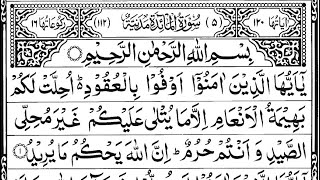 اٰیاتها ١٢٠ (٥) سُوْرَةُ الْمَآئِدَةِ مَدَنِيَّةٌ (١١٢) رکوعاتها ١٦
بِسْمِ اللهِ الرَّحْمٰنِ الرَّحِيْمِ
يٰۤاَيُّهَا الَّذِيْنَ اٰمَنُوْۤا اَوْفُوْا بِالْعُقُوْدِ ؕ اُحِلَّتْ لَكُمْ
بَهِيْمَةُ الْاَنْعَامِ اِلَّا مَا يُتْلٰى عَلَيْكُمْ غَيْرَ مُحِلِّى
الصَّيْدِ وَاَنْتُمْ حُرُمٌ ؕ اِنَّ اللهَ يَحْكُمُ مَا يُرِيْدُ ۝١